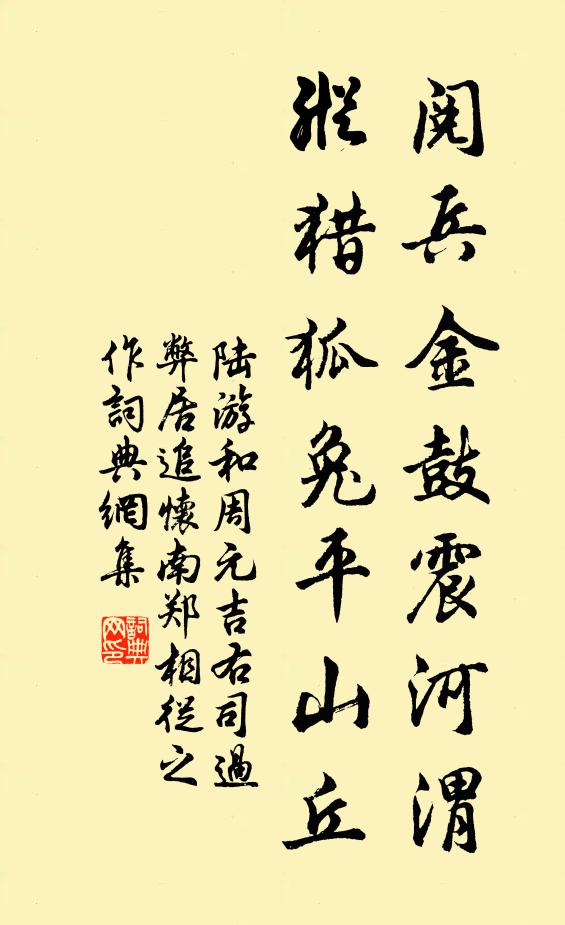 阅兵金鼓震河渭
縱猎狐兔平山丘
陆游和周元吉右司過
弊居追懷南郑相從之
作詞典網集
詞典
网印